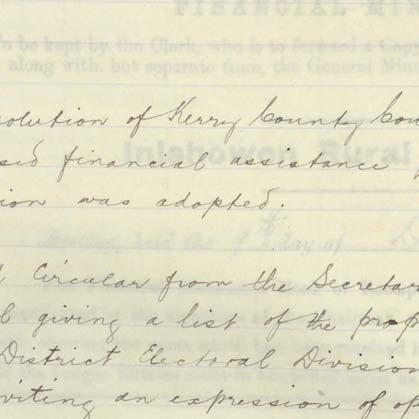 FINANCIAL MIN
to be kept by the Clerk, who is to forward a Cop
along with, but separate from, the General Minu
solution of Kerry County Cou
sed financial assistance
Inishowen Rural
ion was adopted.
Circular from the Secretar
giving a list of the prop
District Electoral Division
viting an expression of op